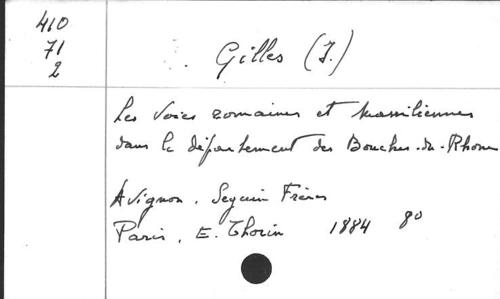 410
71
2
Gilles (J.)
Les Voies romaines et Massiliennes
dans le département des Bouches-du-Rhône
Avignon. Seguin Frères
Paris. E. Thorin 1884 8º